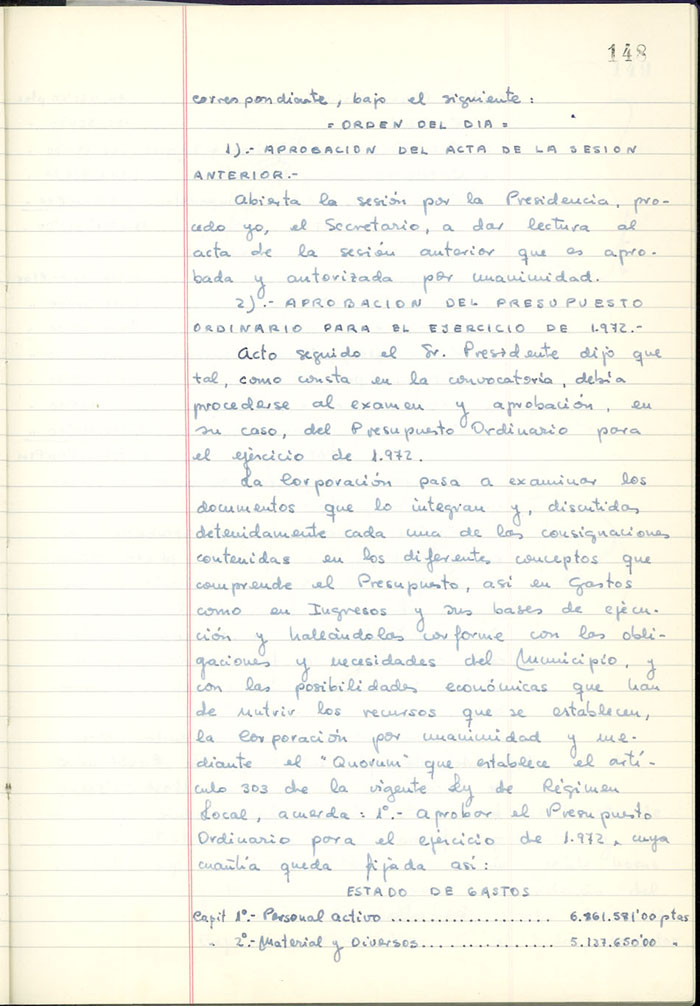 148
correspondiente, bajo el siguiente:
=ORDEN DEL DIA=
1).- APROBACION DEL ACTA DE LA SESION
ANTERIOR.-
Abierta la sesión por la Presidencia, pro-
cedo yo, el Secretario, a dar lectura al
acta de la sesión anterior que es apro-
bada y autorizada por unanimidad.
2).- APROBACION DEL PRESUPUESTO
ORDINARIO PARA EL EJERCICIO DE 1.972.-
Acto seguido el Sr. Presidente dijo que
tal, como consta en la convocatoria, debia
procederse al examen y aprobación, en
su caso, del Presupuesto Ordinario para
el ejercicio de 1.972.
La Corporación pasa a examinar los
documentos que lo integran y, discutidas
detenidamente cada una de las consignaciones
contenidas en los diferentes conceptos que
comprende el Presupuesto, asi en Gastos
como en Ingresos y sus bases de ejecu-
ción y hallándolas conforme con las obli-
gaciones y necesidades del Municipio, y
con las posibilidades económicas que han
de nutrir los recursos que se establecen,
la Corporación por unanimidad y me-
diante el "Quorum" que establece el artí-
culo 303 de la vigente Ley de Régimen
Local, acuerda: 1º.- Aprobar el Presupuesto
Ordinario para el ejercicio de 1.972, cuya
cuantía queda fijada así:
ESTADO DE GASTOS
Capit 1º.- Personal activo .................... 6.861.581'00 ptas
" 2º.- Material y Diversos ................ 5.127.650'00 "